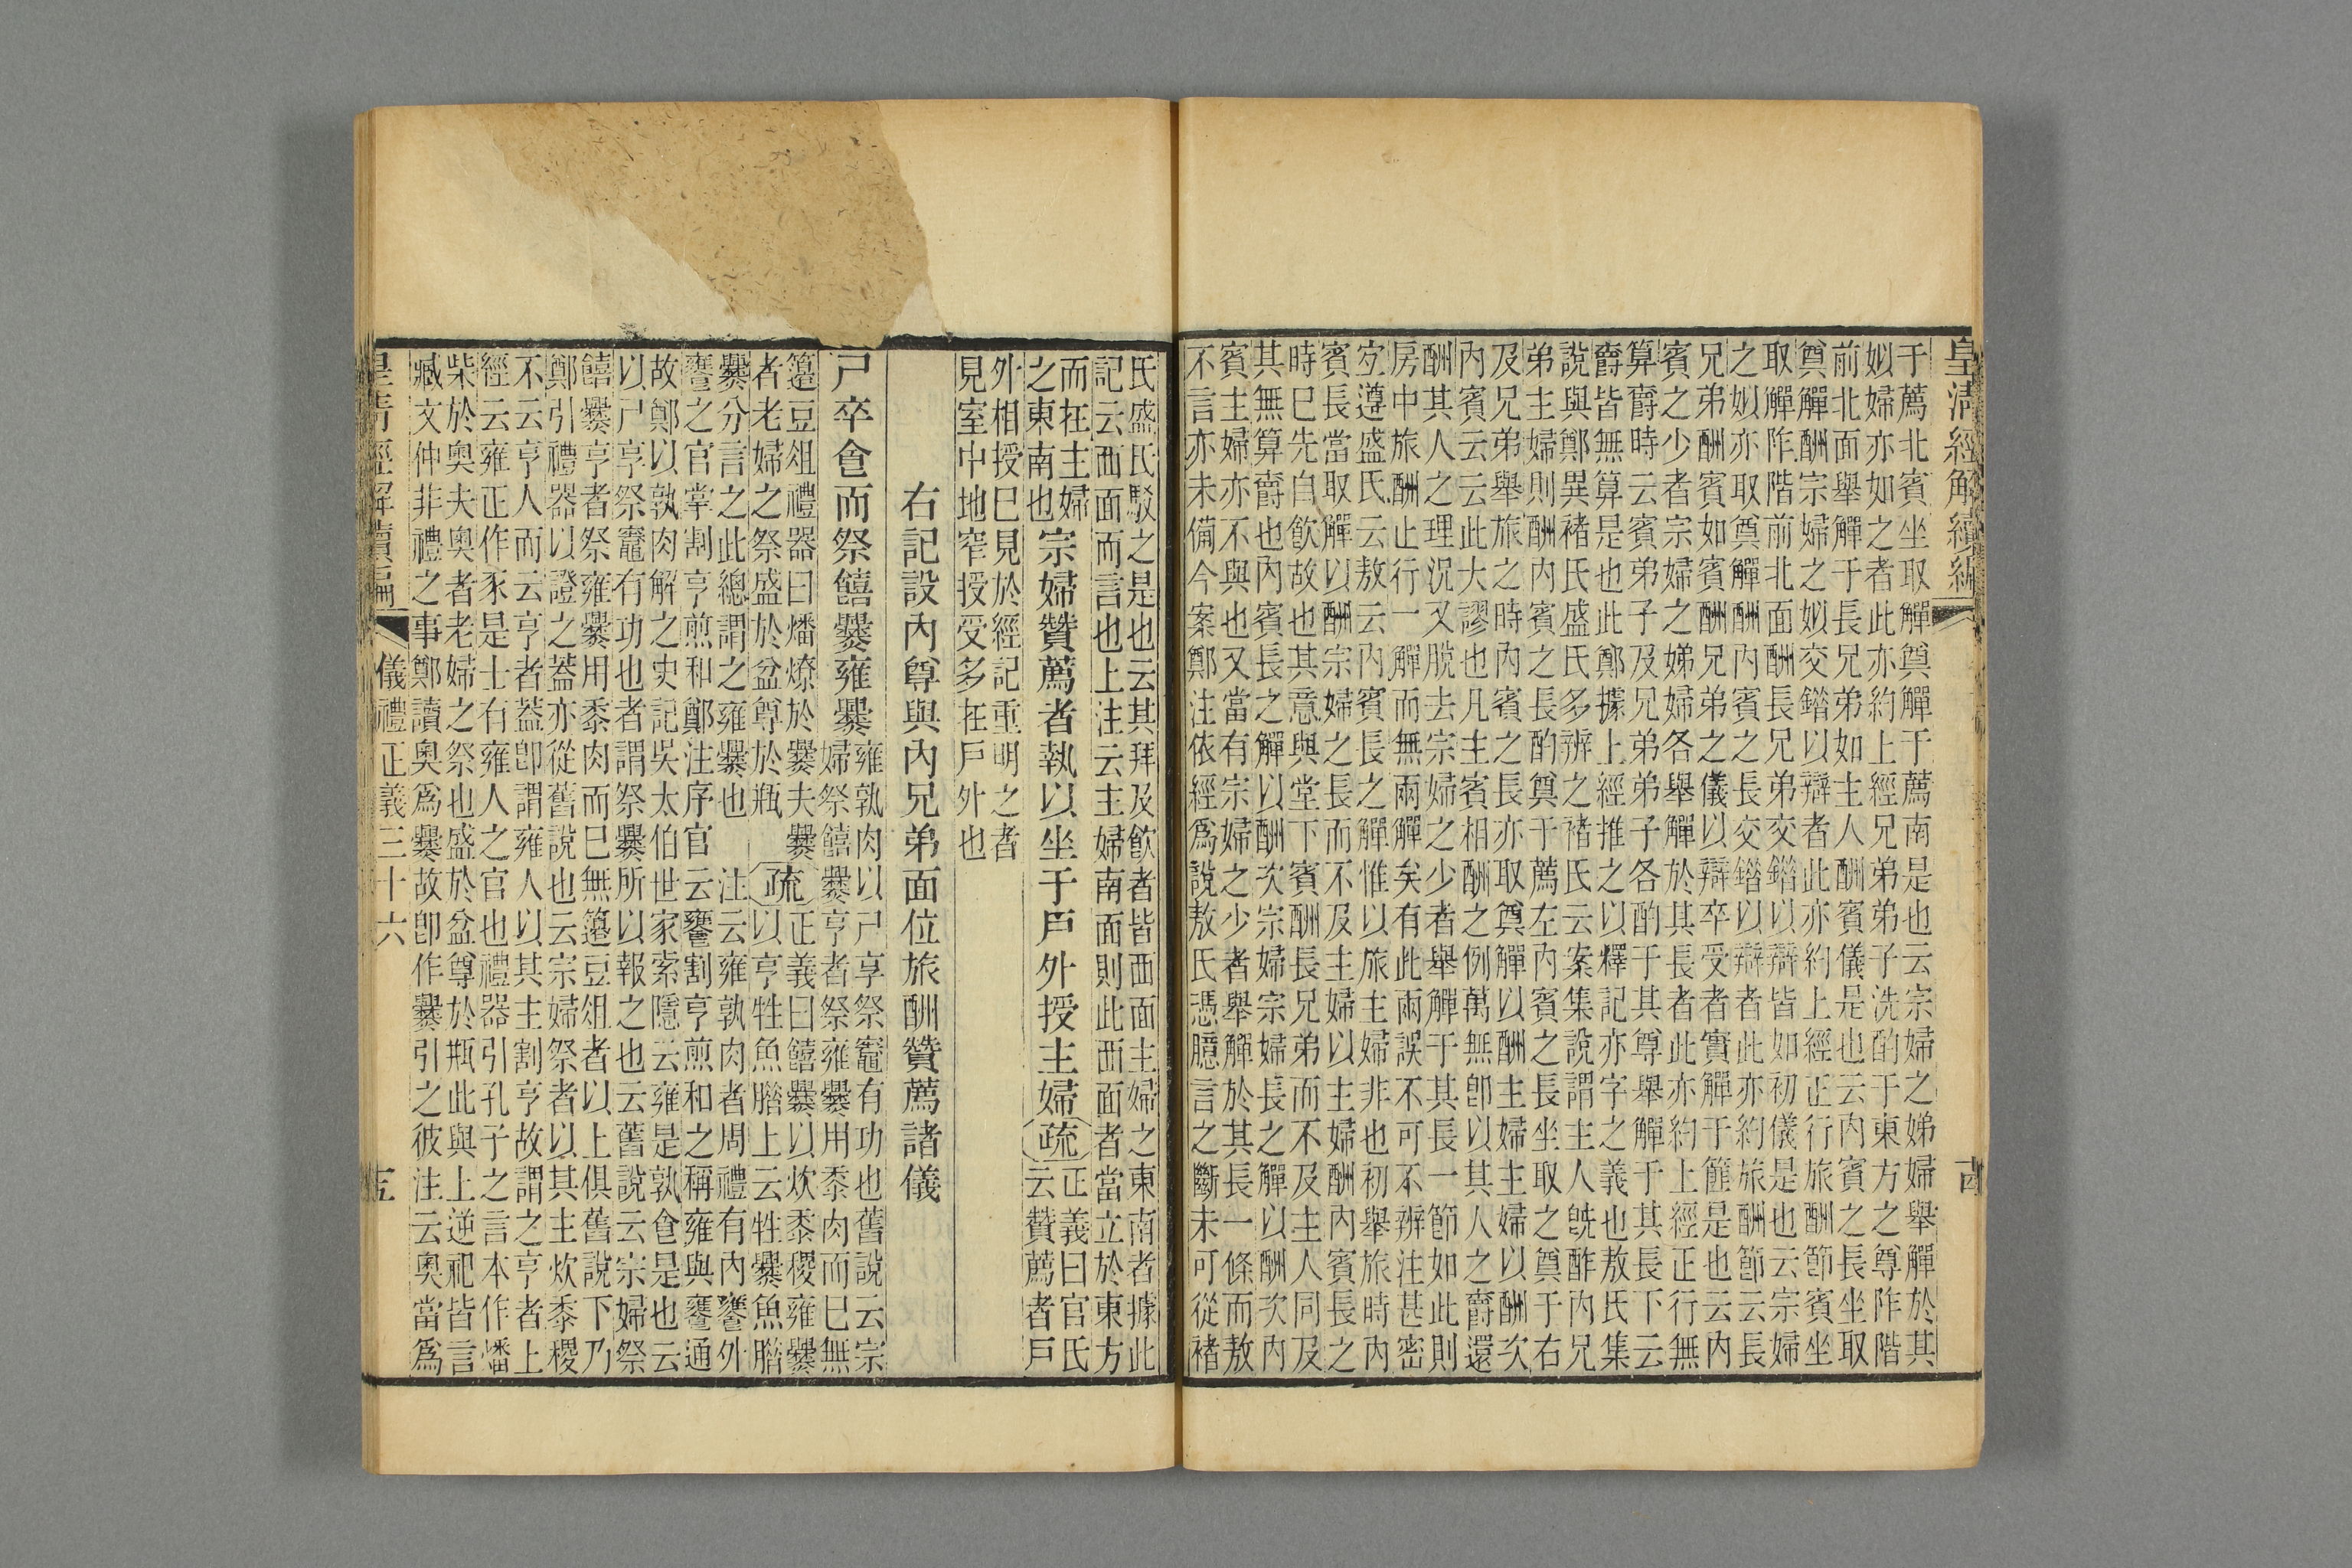 皇清經解續編
于薦北賓坐取觶奠觶于薦南是也云宗婦之娣婦舉觶於其
姒婦亦如之者此亦約上經兄弟弟子洗酌于東方之尊阼階
前北面舉觶于長兄弟如主人酬賓儀是也云內賓之長坐取
奠觶酬宗婦之姒交錯以辯者此亦約上經正行旅酬節賓坐
取觶阼階前北面酬長兄弟交錯以辯皆如初儀是也云宗婦
之姒亦取奠觶酬內賓之長交錯以辯者此亦約旅酬節云長
兄弟酬賓如賓酬兄弟之儀以辯卒受者實觶于篚是也云內
賓之少者宗婦之娣婦各舉觶於其長者此亦約上經正行無
算爵時云賓弟子及兄弟弟子各酌于其尊舉觶于其長下云
爵皆無算是也此鄭據上經推之以釋記亦字之義也敖氏集
說與鄭異褚氏盛氏多辨之褚氏云案集說謂主人旣酢內兄
弟主婦則酬內賓之長酌奠于薦左內賓之長坐取之奠于右
及兄弟舉旅之時內賓之長亦取奠觶以酬主婦主婦以酬次
內賓云云此大謬也凡主賓相酬之例萬無卽以其人之爵還
酬其人之理況又脫去宗婦之少者舉觶于其長一節如此則
房中旅酬止行一觶而無兩觶矣有此兩誤不可不辨注甚密
㝎遵盛氏云敖云內賓長之觶惟以旅主婦非也初舉旅時內
賓長當取觶以酬宗婦之長而不及主婦以主婦酬內賓長之
時巳先自飮故也其意與堂下賓酬長兄弟而不及主人同及
其無算爵也內賓長之觶以酬次宗婦宗婦長之觶以酬次內
賓主婦亦不與也又當有宗婦之少者舉觶於其長一條而敖
不言亦未備今案鄭注依經爲說敖氏憑臆言之斷未可從褚
氏盛氏駁之是也云其拜及飮者皆西面主婦之東南者據此
記云西面而言也上注云主婦南面則此西面者當立於東方
而在主婦
之東南也宗婦贊薦者執以坐于戶外授主婦疏正義曰官氏
云贊薦者戶
外相授巳見於經記重明之者
見室中地窄授受多在戶外也
右記設內尊與內兄弟面位旅酬贊薦諸儀
尸卒食而祭饎爨雍爨雍孰肉以尸享祭竈有功也舊說云宗
婦祭饎爨亨者祭雍爨用黍肉而巳無
籩豆俎禮器曰燔燎於爨夫爨疏正義曰饎爨以炊黍稷雍爨
者老婦之祭盛於盆尊於瓶以亨牲魚腊上云牲爨魚腊
爨分言之此總謂之雍爨也注云雍孰肉者周禮有內饔外
饔之官掌割亨煎和鄭注序官云饔割亨煎和之稱雍與饔通
故鄭以孰肉解之史記吳太伯世家索隱云雍是孰食是也云
以尸享祭竈有功也者謂祭爨所以報之也云舊說云宗婦祭
饎爨亨者祭雍爨用黍肉而巳無籩豆俎者以上俱舊說下乃
鄭引禮器以證之蓋亦從舊說也云宗婦祭者以其主炊黍稷
不云亨人而云亨者蓋卽謂雍人以其主割亨故謂之亨者上
經云雍正作豕是士有雍人之官也禮器引孔子之言本作燔
柴於奧夫奧者老婦之祭也盛於盆尊於瓶此與上逆祀皆言
臧文仲非禮之事鄭讀奧爲爨故卽作爨引之彼注云奧當爲
儀禮正義三十六